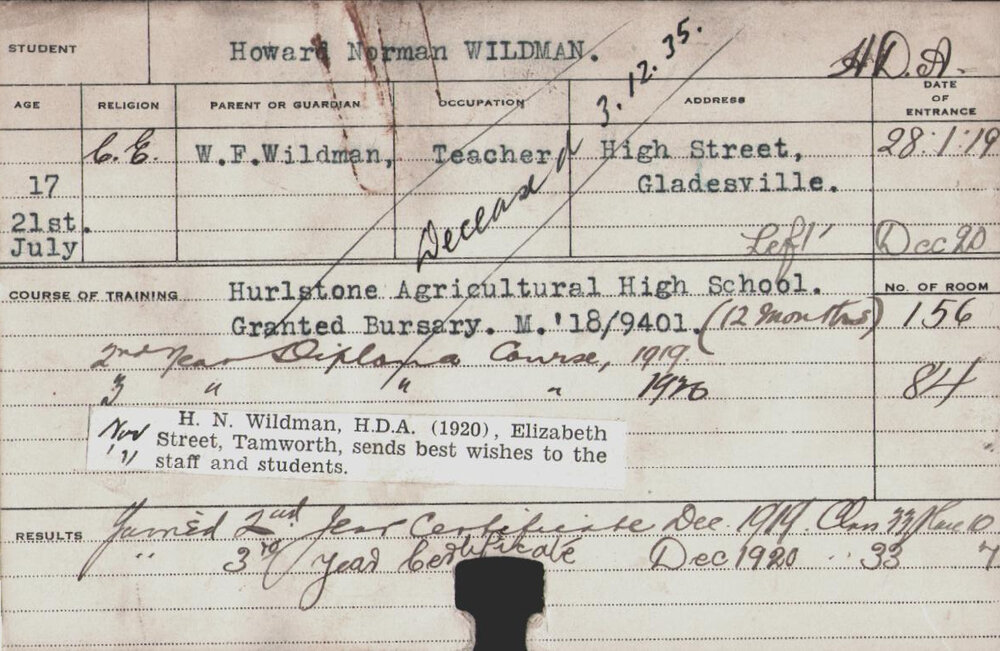 STUDENT Howard Norman WILDMAN. H.D.A.
AGE RELIGION PARENT OR GUARDIAN OCCUPATION ADDRESS DATE OF ENTRANCE
C.E. W.F.Wildman, Teacher High Street, 28:1:19
17 Gladesville.
21st.
July Left Dec 20
Deceased 3.12.35.
COURSE OF TRAINING Hurlstone Agricultural High School. No. OF ROOM
Granted Bursary. M.'18/9401. (12 months) 156
2nd Year Diploma Course, 1919.
3 " " " 1920 84
Nov '71
H. N. Wildman, H.D.A. (1920), Elizabeth
Street, Tamworth, sends best wishes to the
staff and students.
RESULTS Gained 2nd Year Certificate Dec. 1919. Class 33 Place 10
" 3rd Year Certificate Dec 1920 .. 33 7